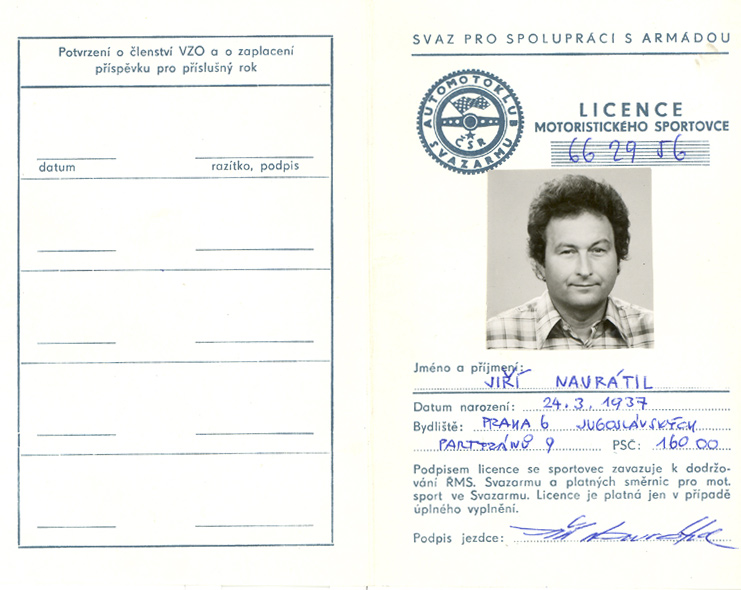 Potvrzení o členství VZO a o zaplacení
příspěvku pro příslušný rok
datum razítko, podpis
SVAZ PRO SPOLUPRÁCI S ARMÁDOU
AUTOMOTOKLUB
ČSR
SVAZARMU
LICENCE
MOTORISTICKÉHO SPORTOVCE
66 29 56
Jméno a příjmení:
JIŘÍ NAVRÁTIL
Datum narození: 24.3.1937
Bydliště: PRAHA 6 JUGOSLÁVSKÝCH
PARTYZÁNŮ 9 PSČ: 160 00
Podpisem licence se sportovec zavazuje k dodržo-
vání ŘMS. Svazarmu a platných směrnic pro mot.
sport ve Svazarmu. Licence je platná jen v případě
úplného vyplnění.
Podpis jezdce: